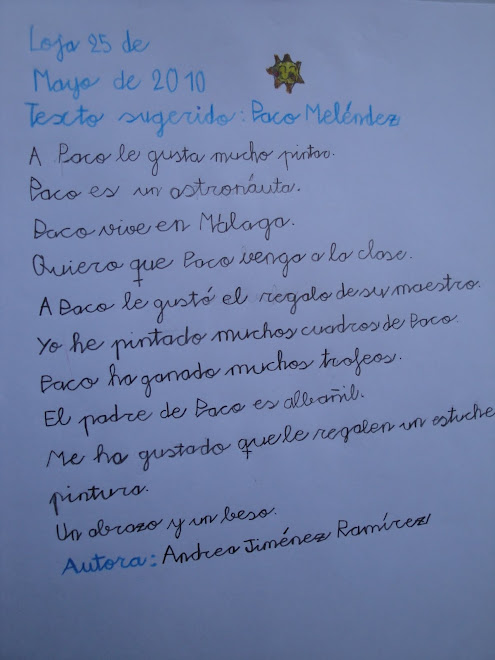 Loja 25 de
Mayo de 2010
Texto sugerido: Paco Meléndez
A Paco le gusta mucho pintar.
Paco es un astronáuta.
Paco vive en Málaga.
Quiero que Paco venga a la clase.
A Paco le gustó el regalo de su maestro.
Yo he pintado muchos cuadros de Paco.
Paco ha ganado muchos trofeos.
El padre de Paco es albañil.
Me ha gustado que le regalen un estuche
pintura.
Un abrazo y un beso.
Autora: Andrea Jiménez Ramírez